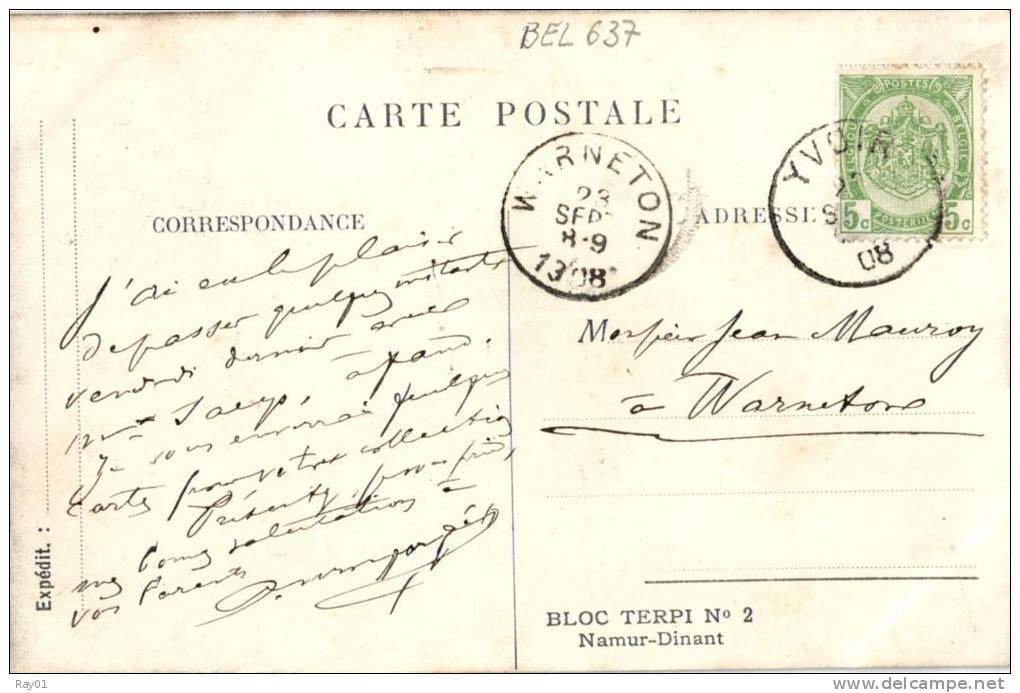 BEL 637
CARTE POSTALE
CORRESPONDANCE
ADRESSE
WARNETON
23
SEPT
8-9
13 08
YVOIR
08
POSTES
BELGIQUE
POSTERIJEN
5c 5c
J'ai eu le plaisir
de passer quelques instants
vendredi dernier avec
Mme
Je vous enverrai quelques
cartes pour votre collection
Présentez, je vous prie,
mes bonnes salutations à
vos Parents
Monsieur Jean Mauroy
à Warneton
Expédit. :
BLOC TERPI No 2
Namur-Dinant
Ray01
www.delcampe.net